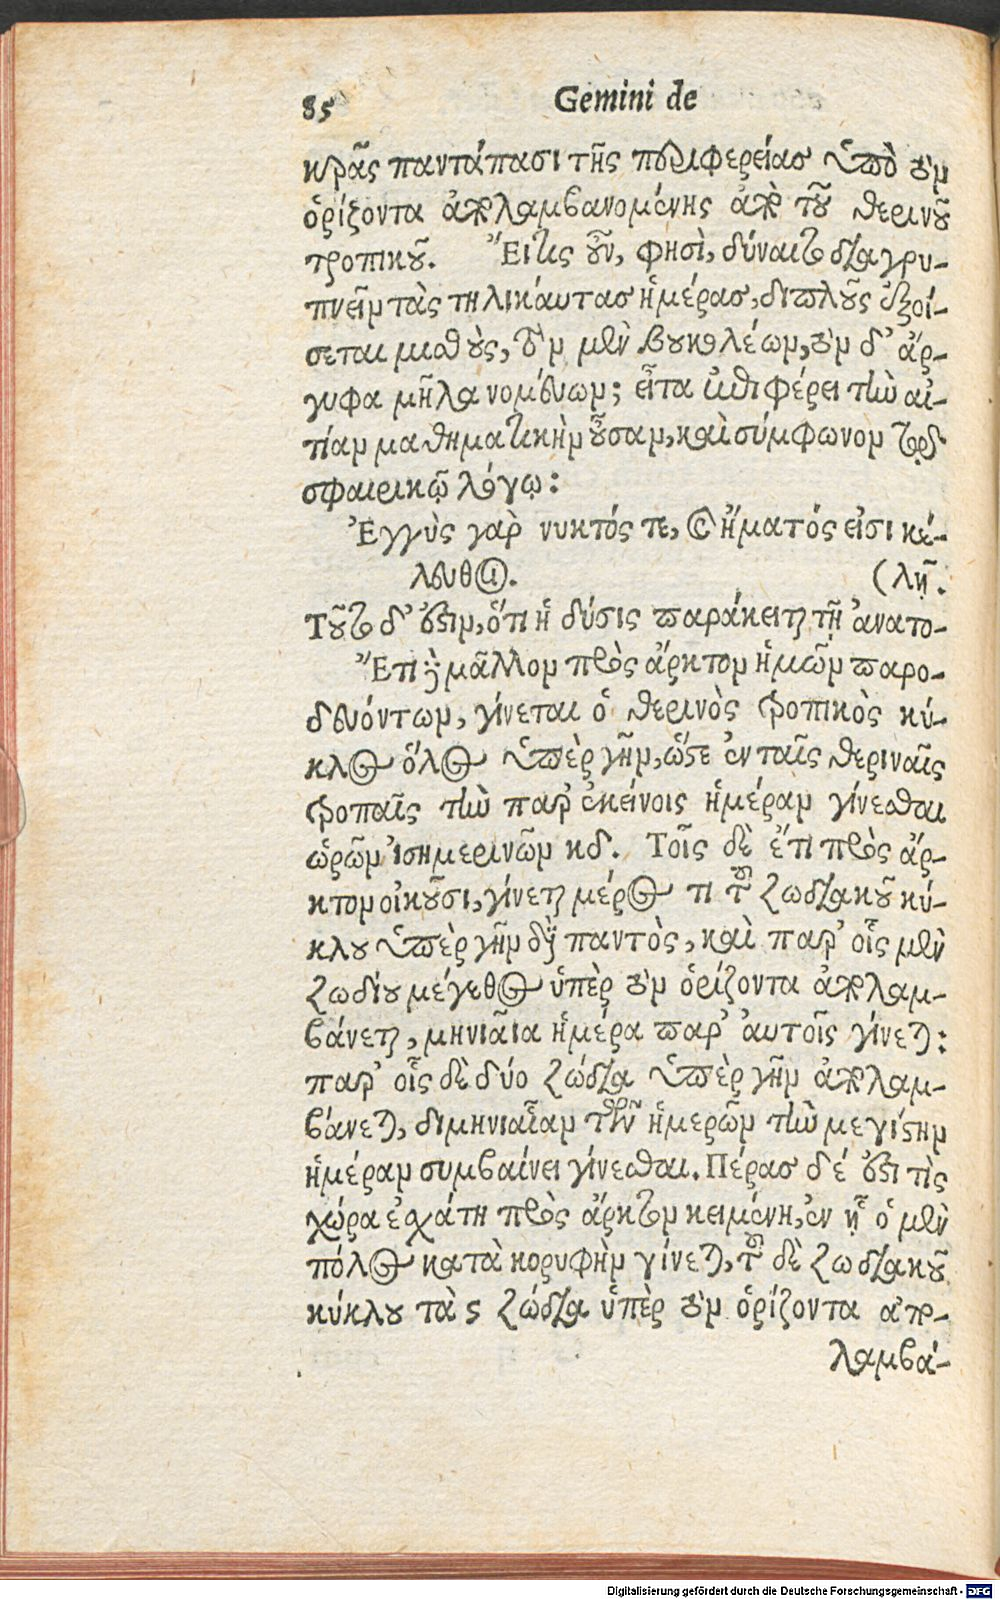 85 Gemini de
κρᾶς παντάπασι τῆς περιφερείας ὑπὸ τὸν
ὁρίζοντα ἀπολαμβανομένης ἀπὸ τοῦ θερινοῦ
τροπικοῦ. Ἔιτις οὖν, φησὶ, δύναιτο διαγρυ-
πνεῖν τὰς τηλικάυτας ἡμέρας, διπλοῦς ἐξοί-
σεται μισθοὺς, τὸν μὲν βουκολέων, τὸν δ' ἄρ-
γυφα μῆλα νομεύων; εἶτα ἐπιφέρει τὴν αἰ-
τίαν μαθηματικὴν οὖσαν, καὶ σύμφωνον τῷ
σφαιρικῷ λόγῳ:
Ἐγγὺς γὰρ νυκτός τε, καὶ ἤματός εἰσι κέ-
λευθοι. (λῇ.
Τοῦτο δ' ἐστιν, ὅτι ἡ δύσις παράκειται τῇ ἀνατο-
Ἔτι δὲ μᾶλλον πρὸς ἄρκτον ἡμῶν παρο-
δευόντων, γίνεται ὁ θερινὸς τροπικὸς κύ-
κλος ὅλος ὑπὲρ γῆν, ὥστε ἐν ταῖς θεριναῖς
τροπαῖς τὴν παρ' ἐκείνοις ἡμέραν γίνεσθαι
ὡρῶν ἰσημερινῶν κδ. Τοῖς δὲ ἔτι πρὸς ἄρ-
κτον οἰκοῦσι, γίνεται μέρος τι τοῦ ζωδιακοῦ κύ-
κλου ὑπὲρ γῆν διὰ παντὸς, καὶ παρ' οἷς μὲν
ζωδίου μέγεθος ὑπὲρ τὸν ὁρίζοντα ἀπολαμ-
βάνεται, μηνιαῖα ἡμέρα παρ' ἀυτοῖς γίνεται:
παρ' οἷς δὲ δύο ζώδια ὑπὲρ γῆν ἀπολαμ-
βάνεται, διμηνιαῖαν τῶν ἡμερῶν τὴν μεγίστην
ἡμέραν συμβαίνει γίνεσθαι. Πέρας δέ ἐστι τὶς
χώρα ἐσχάτη πρὸς ἄρκτον κειμένη, ἐν ᾗ ὁ μὲν
πόλος κατὰ κορυφὴν γίνεται, τοῦ δὲ ζωδιακοῦ
κύκλου τὰ ϛ ζώδια ὑπὲρ τὸν ὁρίζοντα ἀπο-
λαμβά-
Digitalisierung gefördert durch die Deutsche Forschungsgemeinschaft - DFG